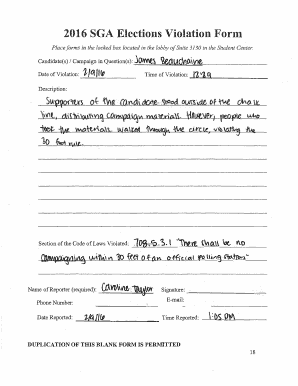 2016 SGA Elections Violation Form
Place forms in the locked box located in the lobby of Suite 3130 in the Student Center.
Candidate(s) / Campaign in Question(s): James Beauchaine
Date of Violation: 2/9/16 Time of Violation: 12:29
Description:
Supporters of the candidate stood outside of the chalk
line, distributing campaign materials. However, people who
took the materials walked through the circle, violating the
30 foot rule.
Section of the Code of Laws Violated: 708.5.3.1 "There shall be no
campaigning within 30 feet of an official polling station"
Name of Reporter (required): Caroline Taylor Signature:
Phone Number: E-mail:
Date Reported: 2/9/16 Time Reported: 1:05 PM
DUPLICATION OF THIS BLANK FORM IS PERMITTED
18